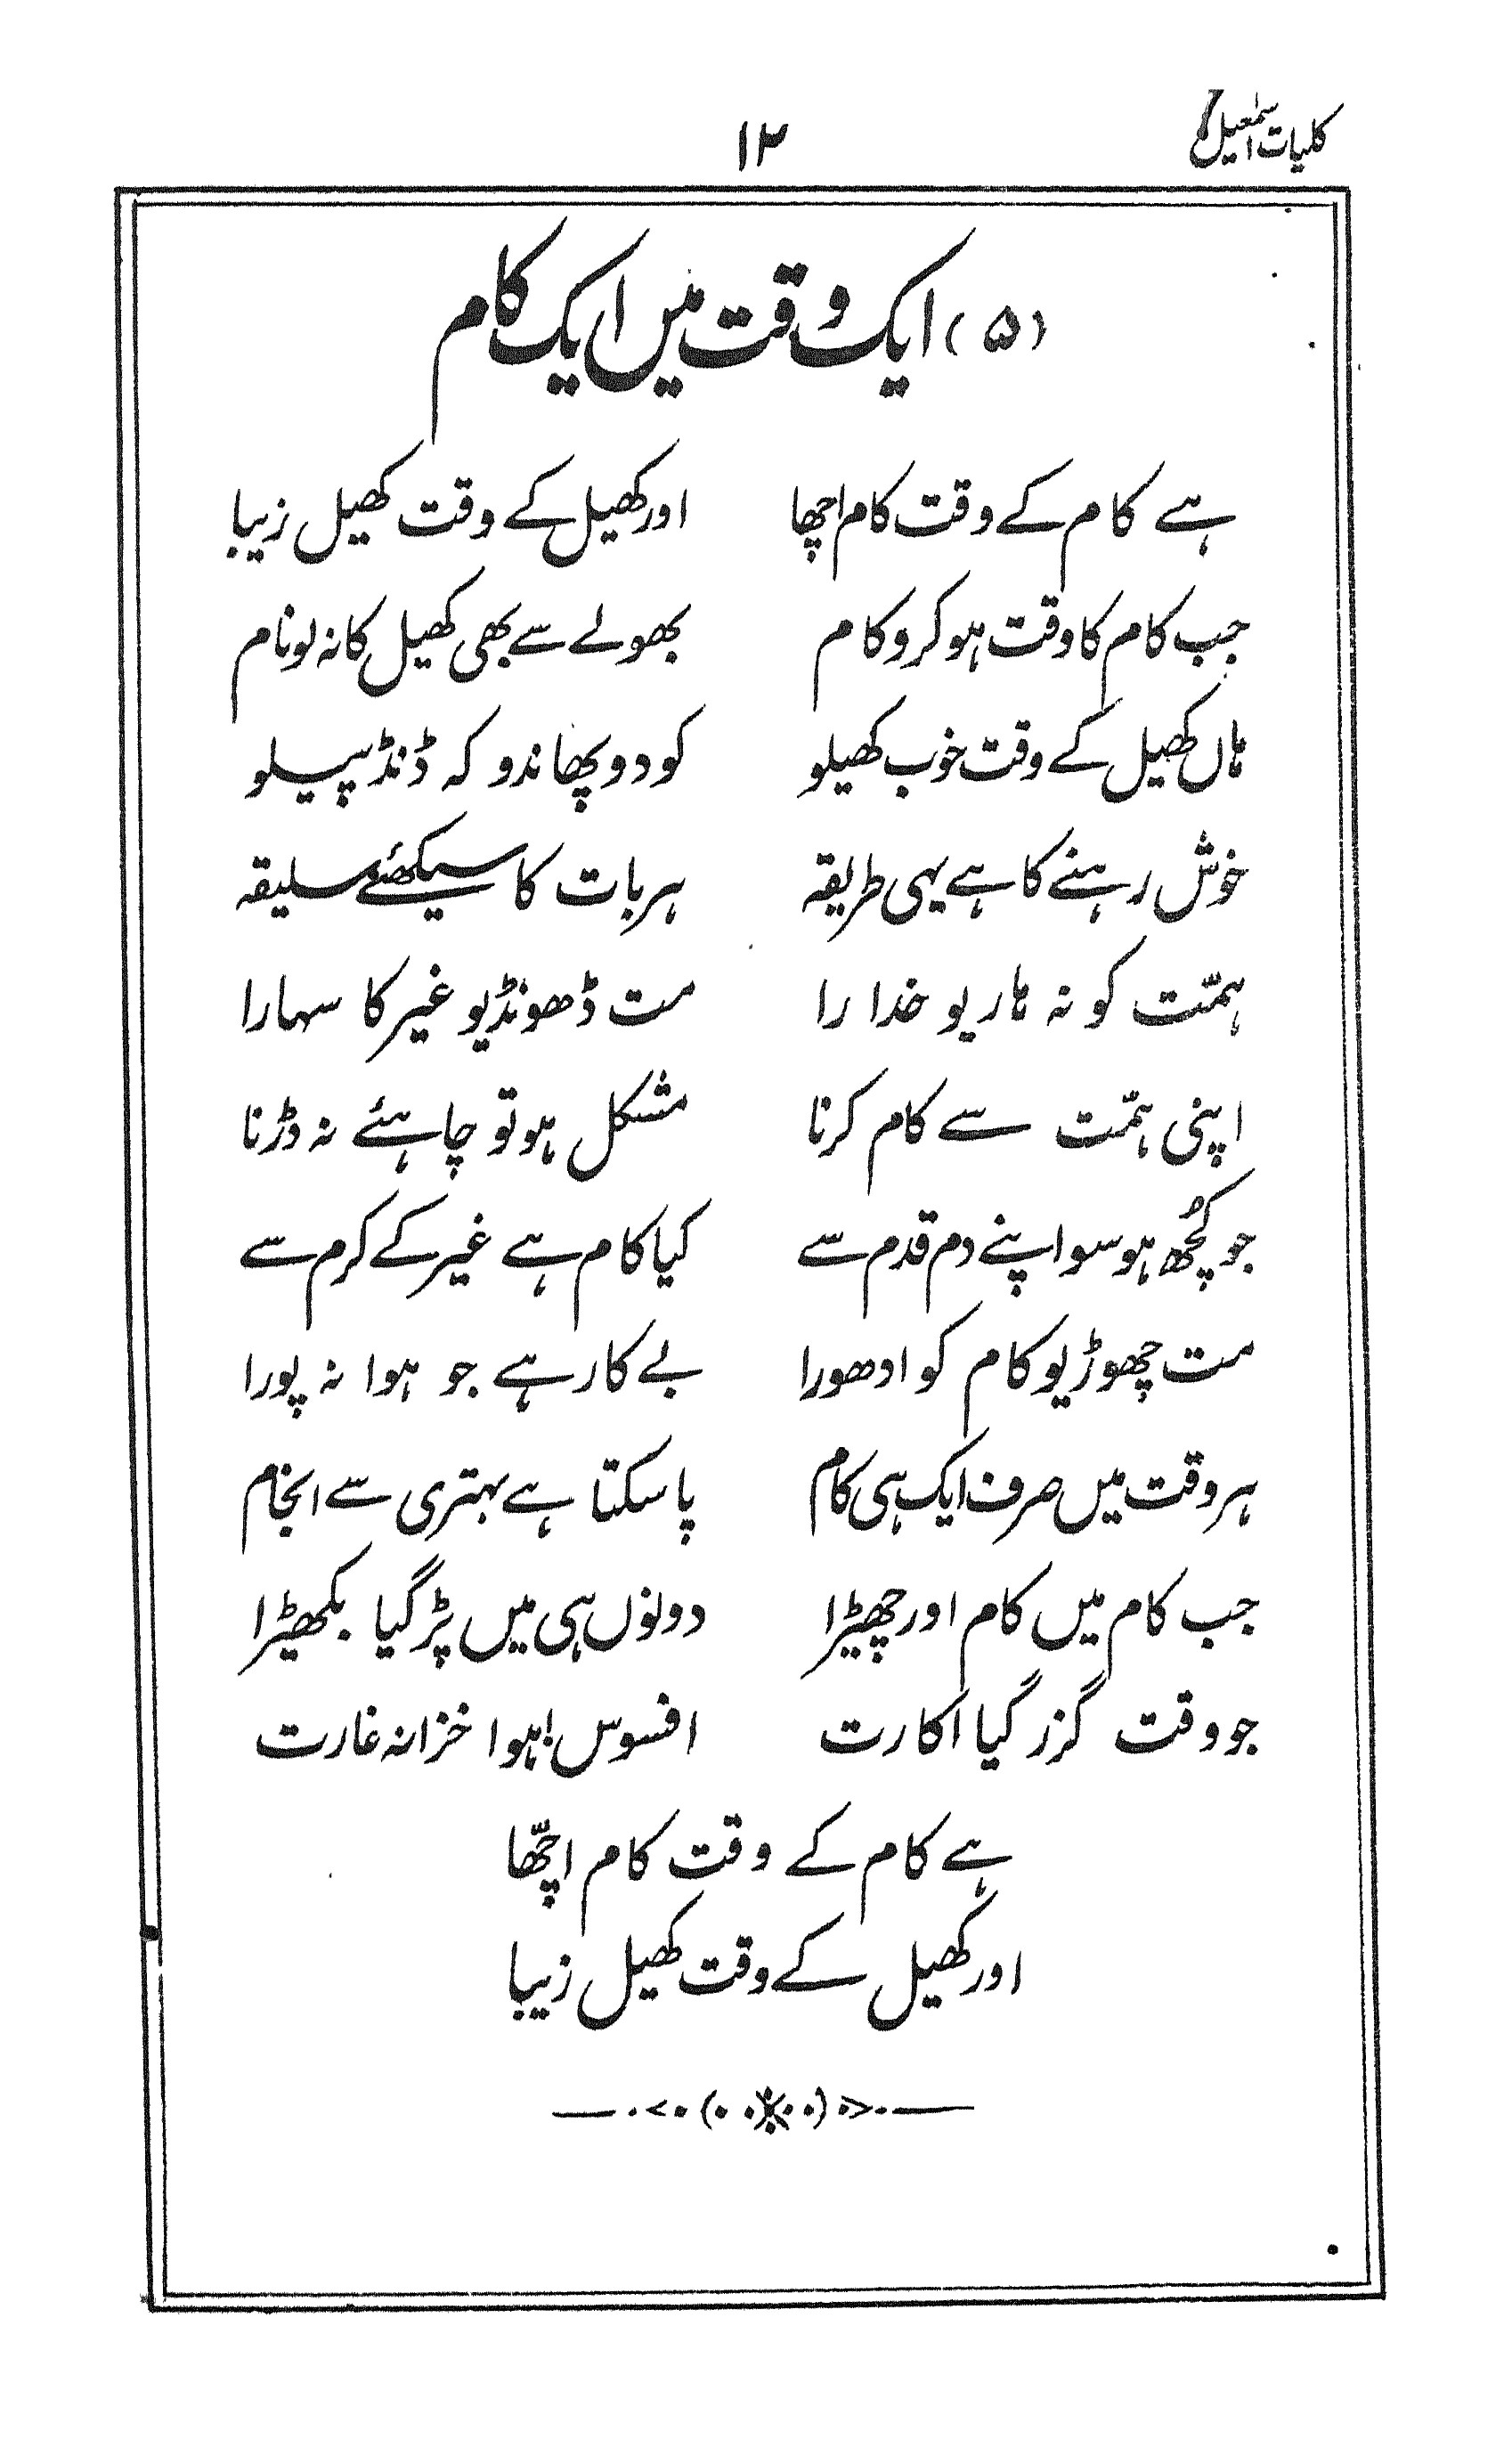 کلیات اسمٰعیل
۱۲
(۵) ایک وقت میں ایک کام
ہے کام کے وقت کام اچھا اور کھیل کے وقت کھیل زیبا
جب کام کا وقت ہو کرو کام بھولے سے بھی کھیل کا نہ لو نام
ہاں کھیل کے وقت خوب کھیلو کودو پھاندو کہ ڈنڈ پیلو
خوش رہنے کا ہے یہی طریقہ ہر بات کا سیکھئے سلیقہ
ہمّت کو نہ ہاریو خدا را مت ڈھونڈیو غیر کا سہارا
اپنی ہمّت سے کام کرنا مشکل ہو تو چاہئے نہ ڈرنا
جو کچُھ ہو سو اپنے دم قدم سے کیا کام ہے غیر کے کرم سے
مت چھوڑیو کام کو ادھورا بے کار ہے جو ہوا نہ پورا
ہر وقت میں صرف ایک ہی کام پا سکتا ہے بہتری سے انجام
جب کام میں کام اور چھیڑا دونوں ہی میں پڑ گیا بکھیڑا
جو وقت گزر گیا اکارت افسوس! ہوا خزانہ غارت
ہے کام کے وقت کام اچّھا
اور کھیل کے وقت کھیل زیبا